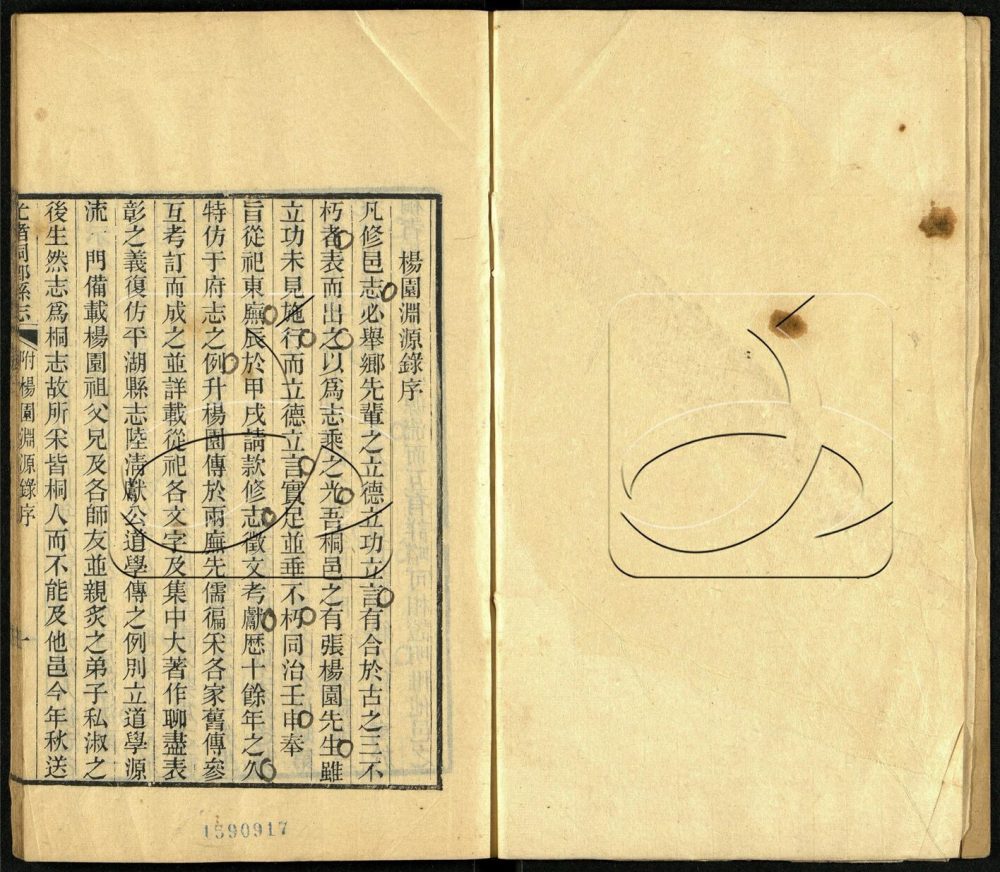 楊園淵源錄序
凡修邑志必舉鄉先輩之立德立功立言有合於古之三不
朽者表而出之以爲志乘之光吾桐邑之有張楊園先生雖
立功未見施行而立德立言實足並垂不朽同治壬申奉
旨從祀東廡辰於甲戌請款修志徵文考獻歷十餘年之久
特仿于府志之例升楊園傳於兩廡先儒徧采各家舊傳參
互考訂而成之並詳載從祀各文字及集中大著作聊盡表
彰之義復仿平湖縣志陸清獻公道學傳之例別立道學源
流一門備載楊園祖父兄及各師友並親炙之弟子私淑之
後生然志爲桐志故所采皆桐人而不能及他邑今年秋送
桐鄉縣志 附楊園淵源錄序 一
1590917